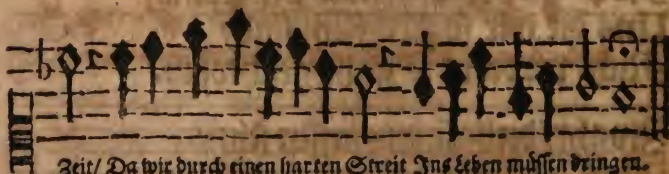 Zeit/ Da wir durch einen harten Streit Ins Leben müssen dringen.